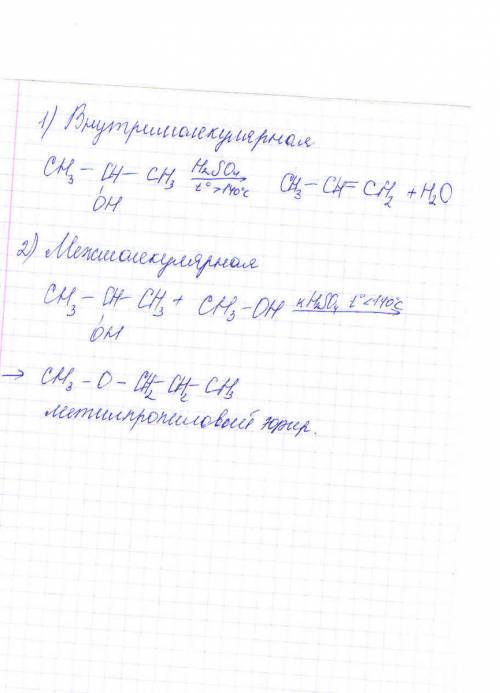 1) Внутримолекулярная
CH₃ – CH – CH₃ H₂SO₄ t°>140°C CH₃ – CH = CH₂ + H₂O
OH
2) Межмолекулярная
CH₃ – CH – CH₃ + CH₃ – OH кH₂SO₄ t°<140°C
OH
→ CH₃ – O – CH₂ – CH₂ – CH₃
метилпропиловый эфир.